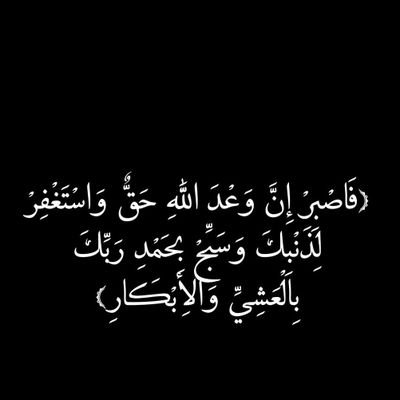 ﴿فَاصْبِرْ إِنَّ وَعْدَ اللَّهِ حَقٌّ وَاسْتَغْفِرْ
لِذَنْبِكَ وَسَبِّحْ بِحَمْدِ رَبِّكَ
بِالْعَشِيِّ وَالْإِبْكَارِ﴾